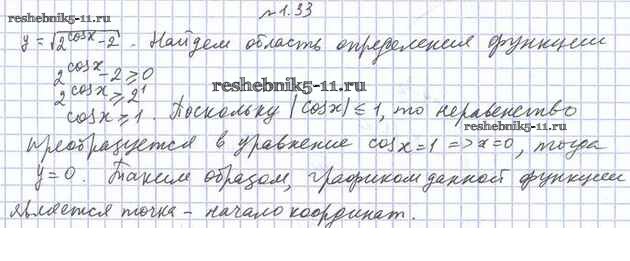 №1.33
reshebnik5-11.ru
reshebnik5-11.ru
y=√(2^cosx-2). Найдем область определения функции
2^cosx-2≥0
2^cosx≥2¹
reshebnik5-11.ru
cosx≥1. Поскольку |cosx|≤1, то неравенство
reshebnik5-11.ru
преобразуется в уравнение cosx=1=>x=0, тогда
y=0. Таким образом, графиком данной функции
является точка - начало координат.
reshebnik5-11.ru